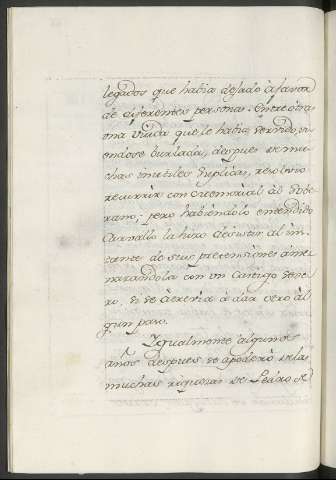 legados que habia dejado à favor
de diferentes personas. Entre otras
una Viuda que le habia servido, vi-
endose burlada, despues de mu-
chas inutiles suplicas, resolvió
recurrir con memorial al Sobe-
rano; pero habiendolo entendido
Carvallo la hizo desistir al ins-
tante de sus pretensiones ame-
nazandola con un Castigo seve-
ro, si se atrevia à dar otro al-
gun paso.
Igualmente algunos
años despues se apoderó de las
muchas riquezas de Pedro